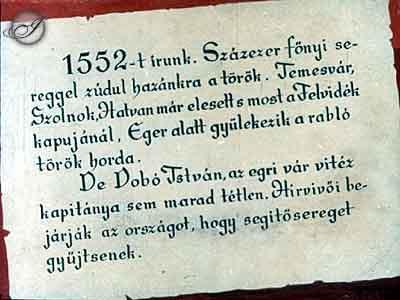 1552-t írunk. Százezer főnyi se-
reggel zúdul hazánkra a török. Temesvár,
Szolnok, Hatvan már elesett s most a Felvidék
kapujánál, Eger alatt gyülekezik a rabló
török horda.
De Dobó István, az egri vár vitéz
kapitánya sem marad tétlen. Hírvivői be-
járják az országot, hogy segitősereget
gyűjtsenek.